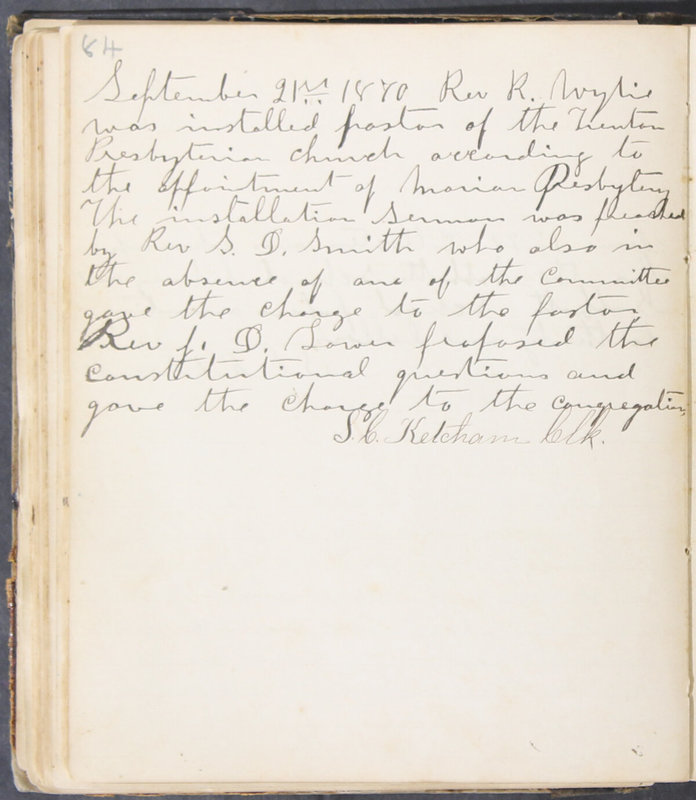 84
September 21st 1880 Rev R. Wylie
was installed pastor of the Trenton
Presbyterian church according to
the appointment of Marion Presbytery
The installation sermon was preached
by Rev G. D. Smith who also in
the absence of one of the committee
gave the charge to the pastor
Rev J. D. Lower proposed the
constitutional questions and
gave the charge to the congregation,
S. C. Ketcham Clk.